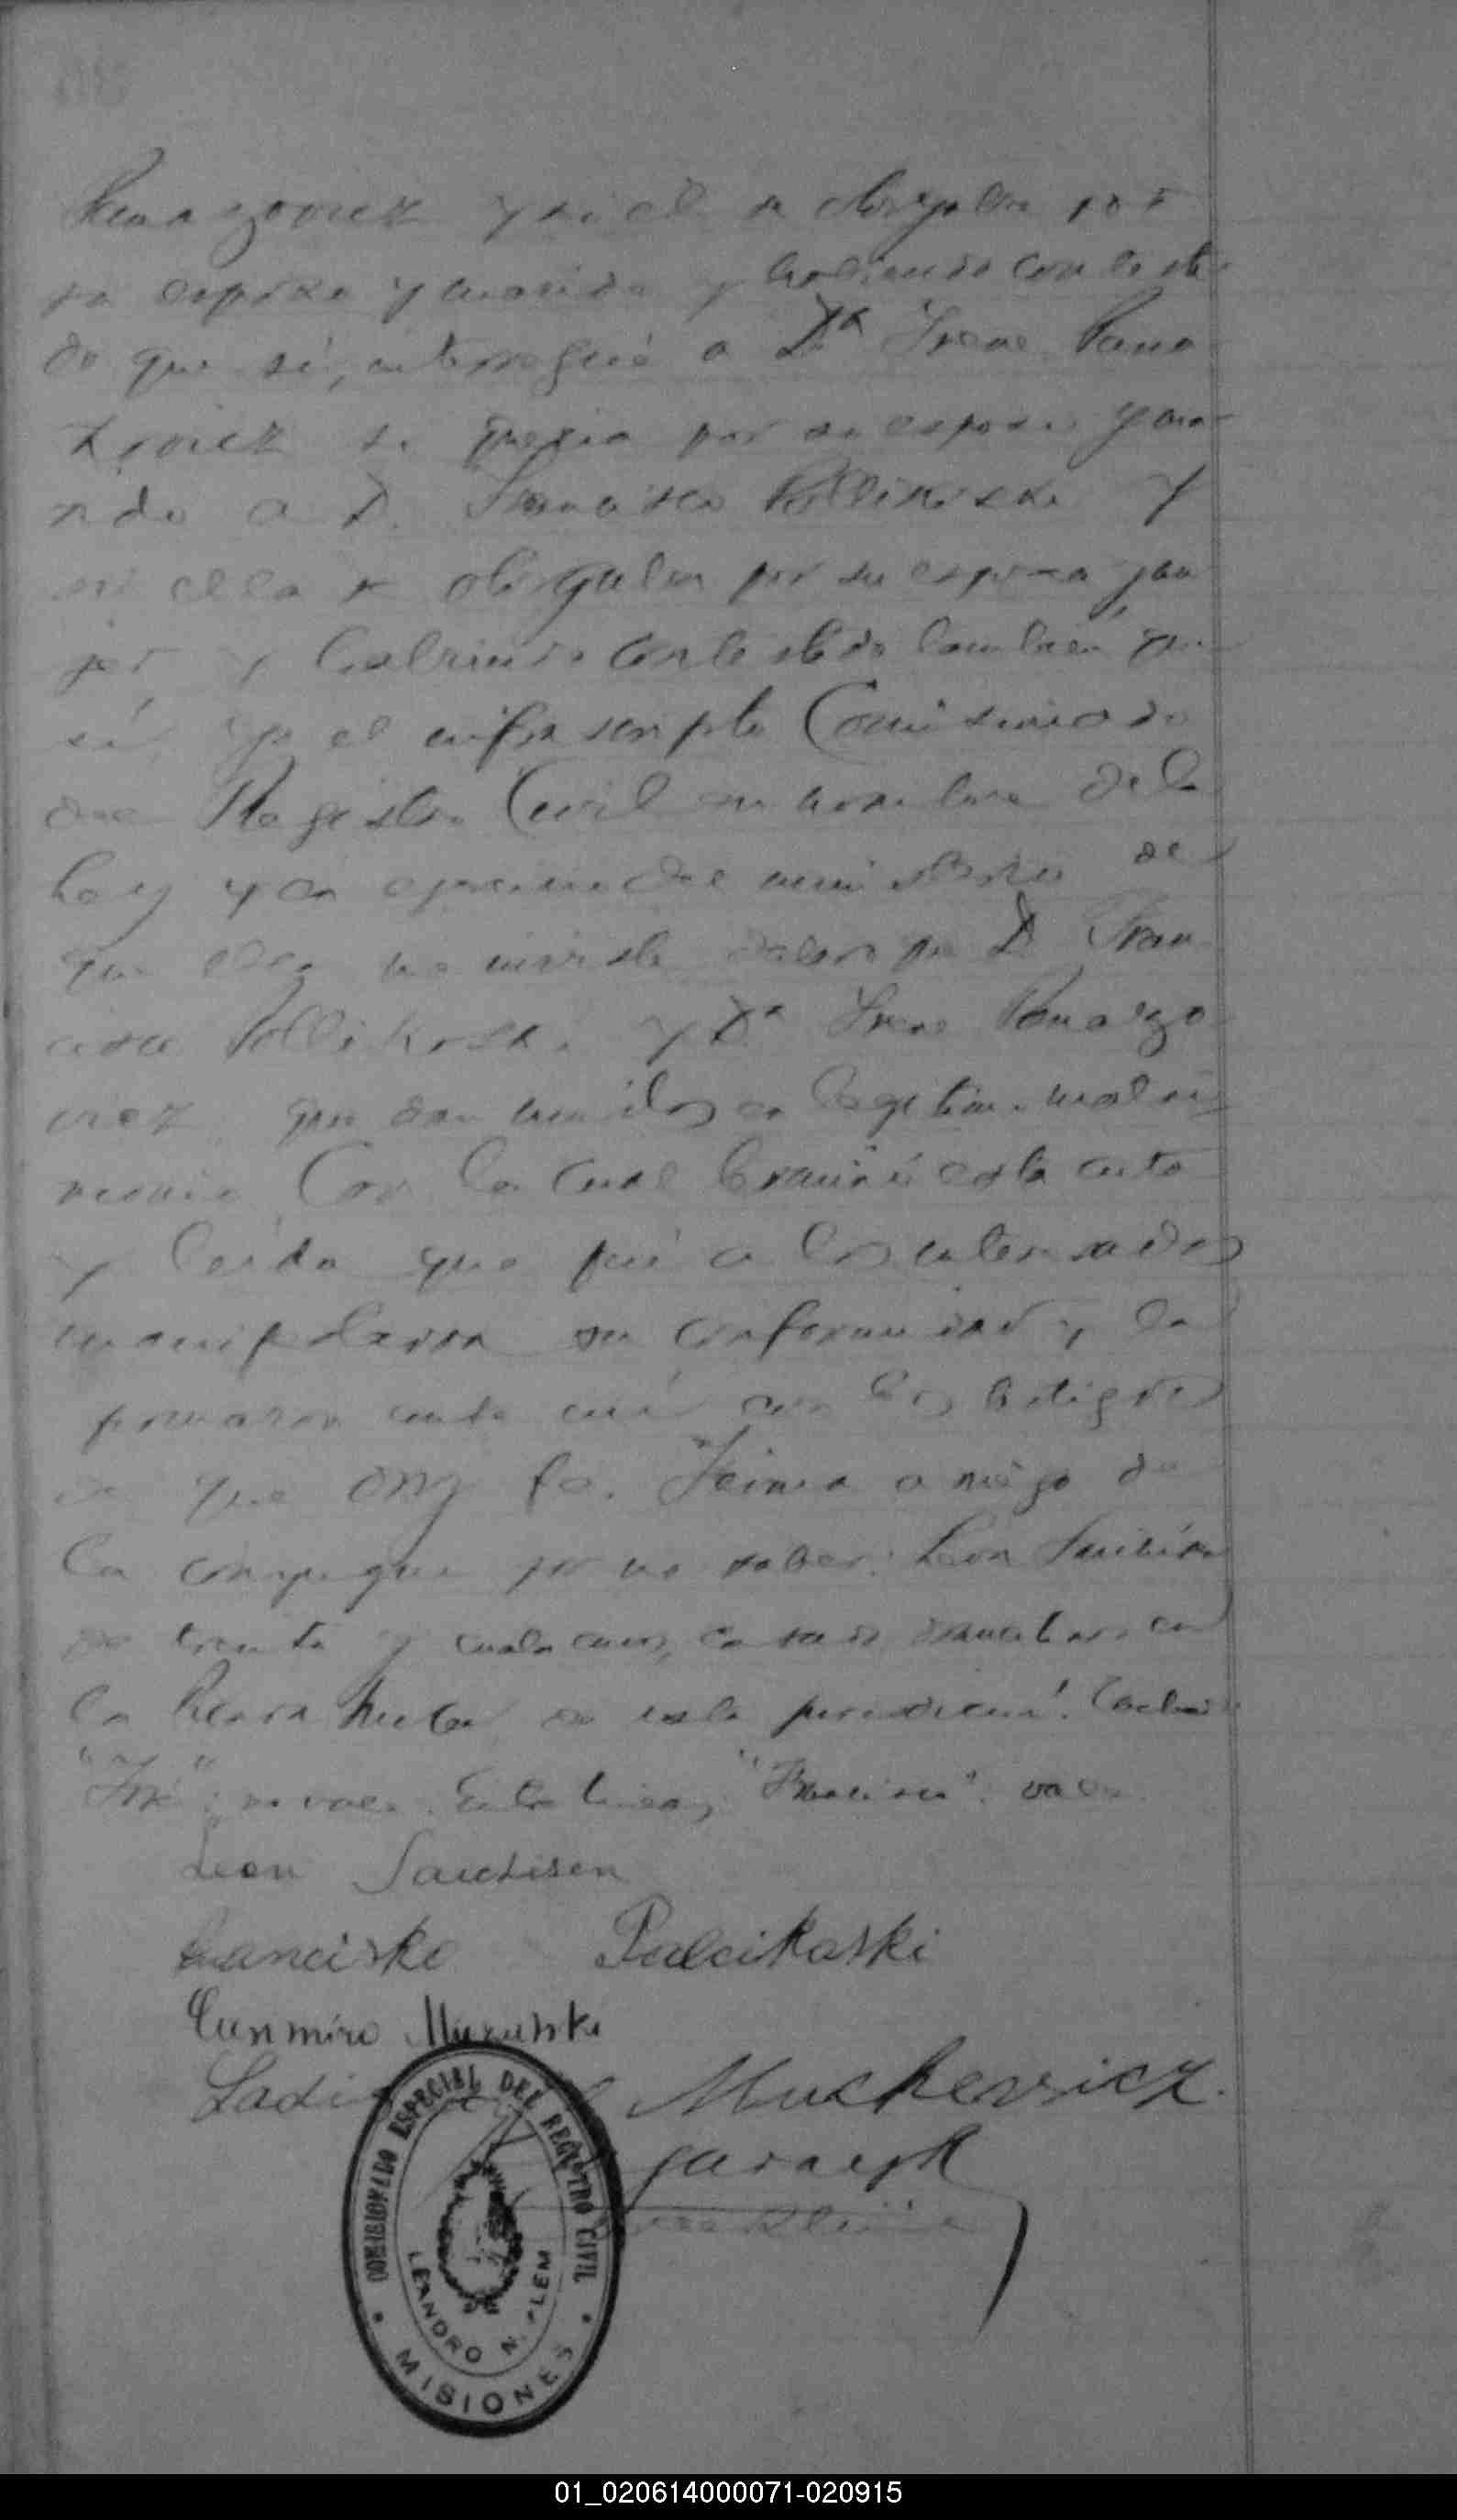 y si él se obligaba por
su esposo y marido y habiendo contesta-
do que sí, interrogué a Dª Irene Pana-
zovicz si quería por su esposo y ma-
rido a D. Francisco Pollikoski y
si ella se obligaba por su esposa y mu
jer y habiendo contestado también que
sí, yo el infrascripto Comisionado
del Registro Civil en nombre de la
Ley y en ejercicio del ministerio de
que ella me inviste declaro que D. Fran
cisco Pollikoski y Dª Irene Panazo
vicz quedan unidos en legítimo matri-
monio. Con lo cual terminó esta acta
y leída que fué a los interesados
manifestaron su conformidad y la
firmaron ante mí con los testigos
de que doy fe. Firma a ruego de
la cónyugue por no saber: León
de treinta y cuatro años, casado, domiciliado en
la de esta jurisdicción. Tachado
"José": no vale. Entre líneas, "Francisco": vale
Leon Sauchisen
Francisko Pulcikoski
Casimiro
Muchewicz
COMISIONADO ESPECIAL DEL REGISTRO CIVIL
LEANDRO N. ALEM
MISIONES
01_020614000071-020915